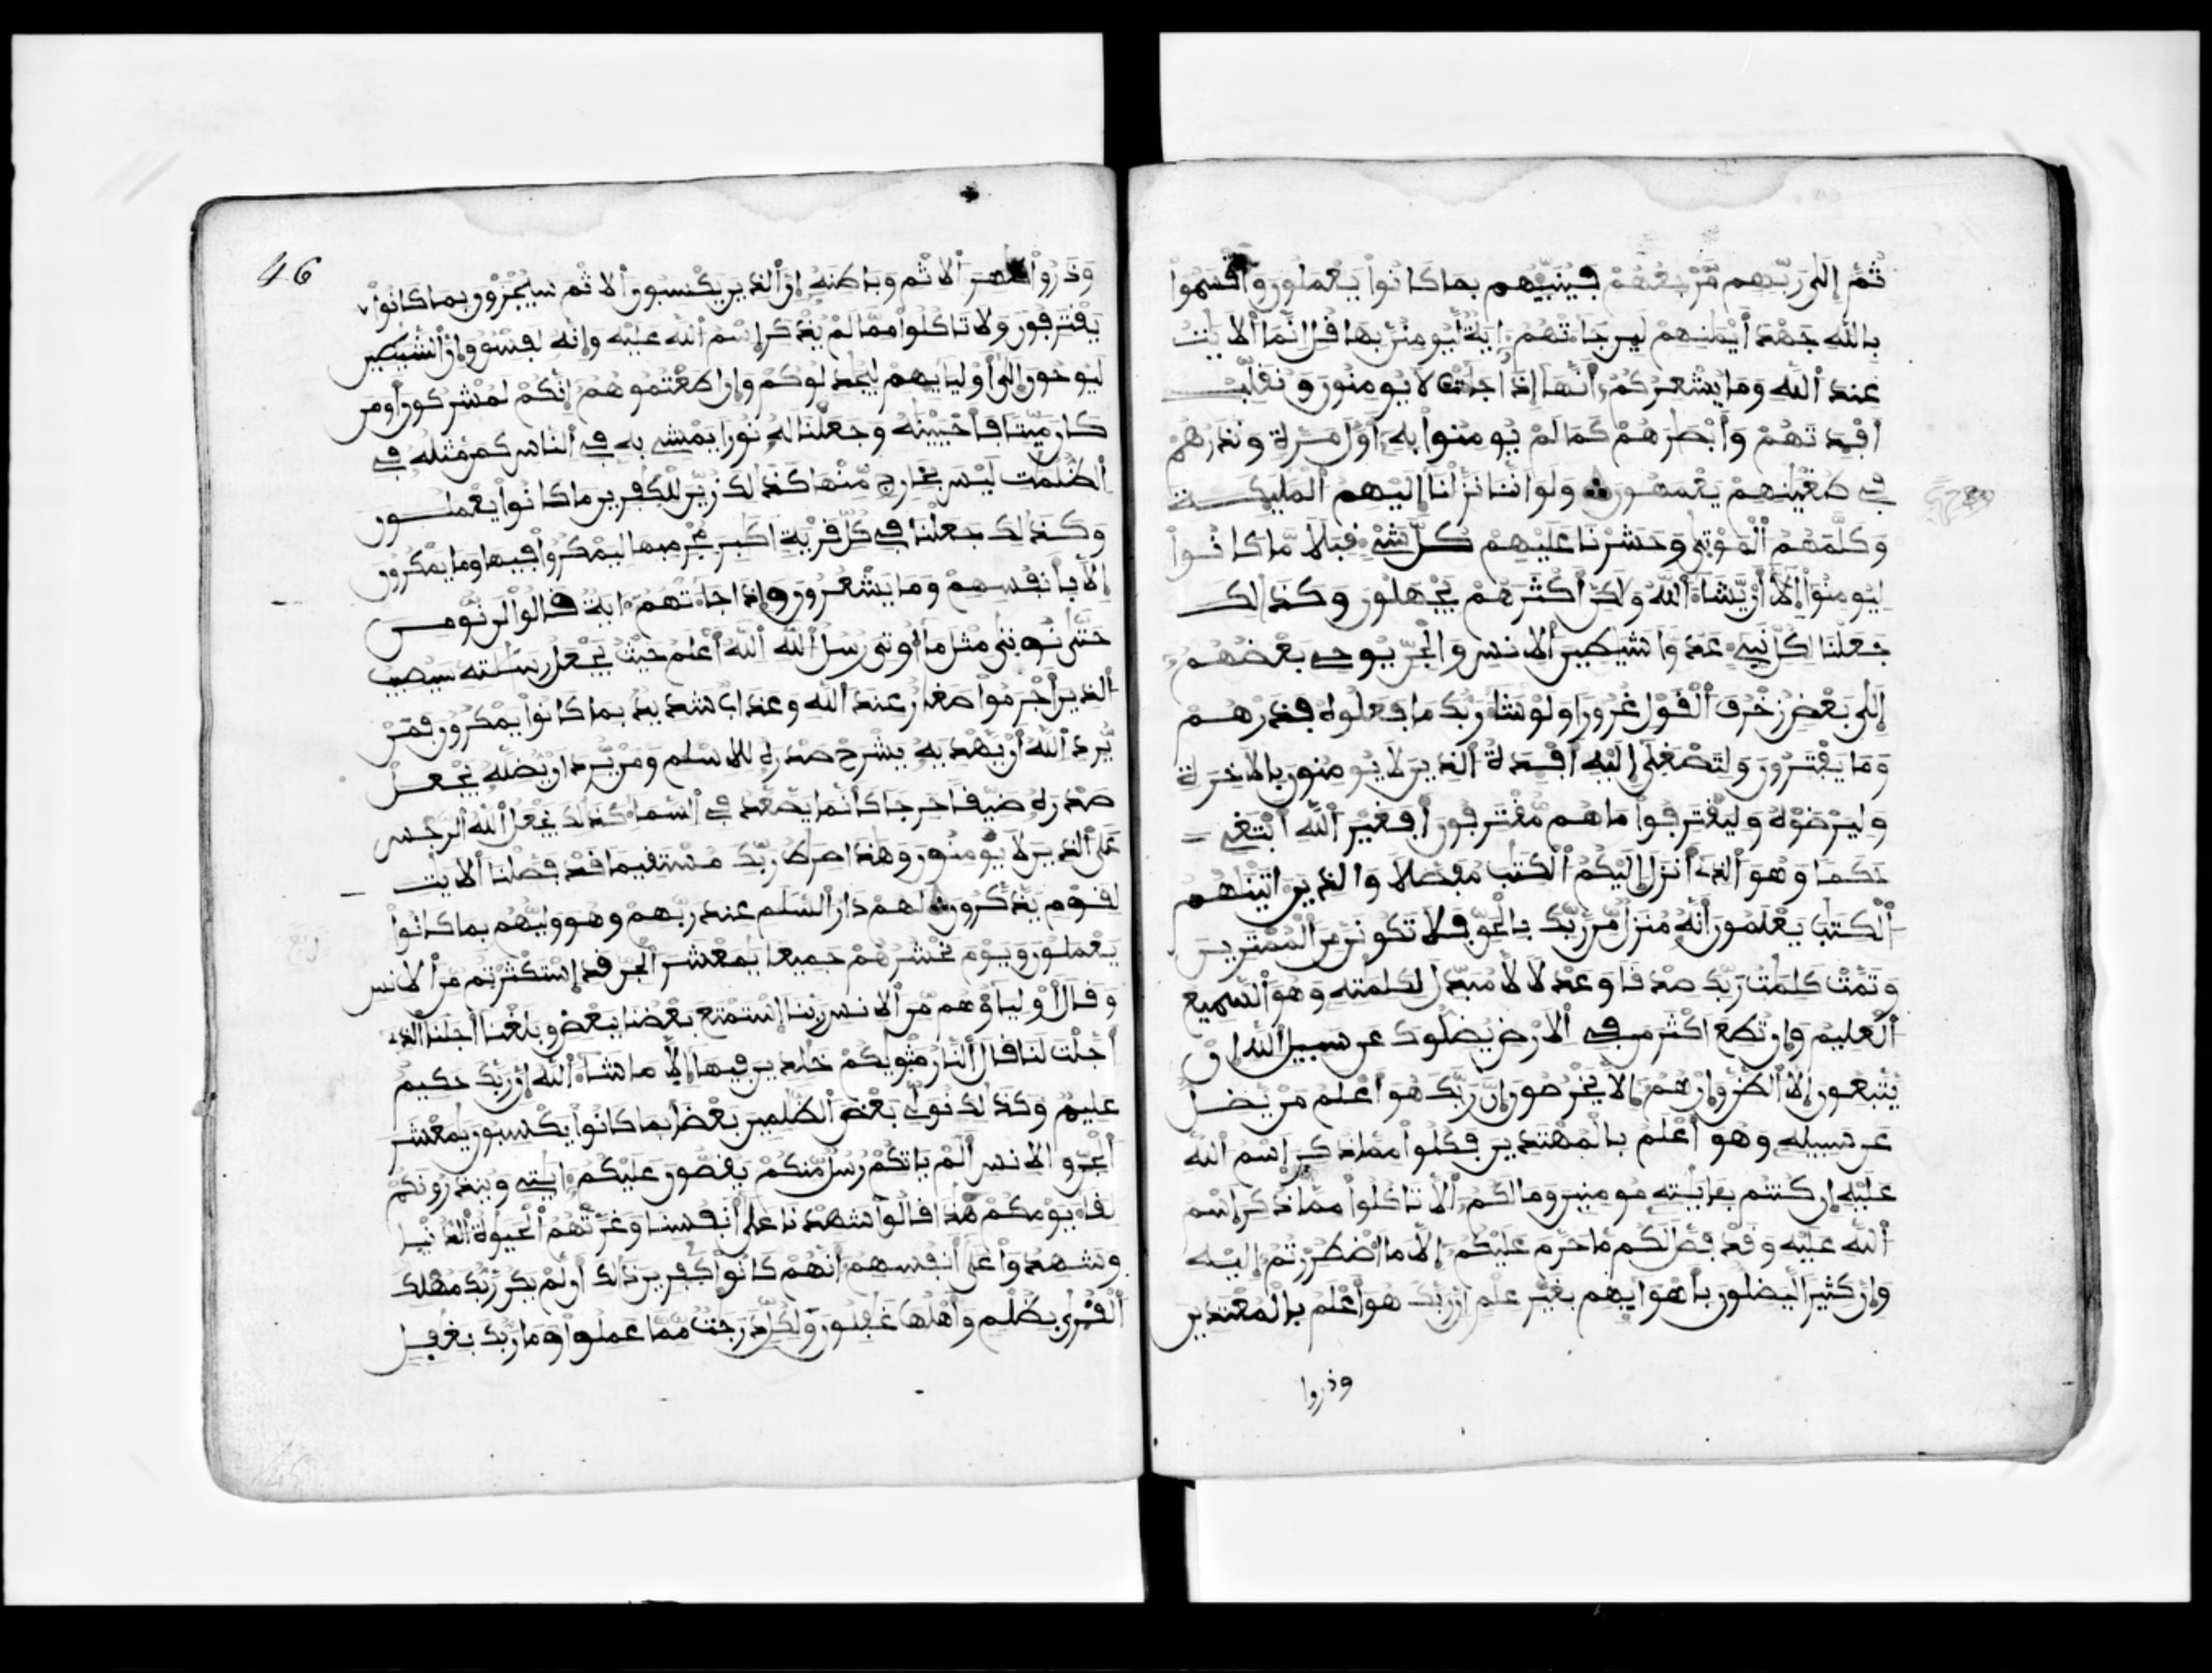 ثُمَّ إِلَىٰ رَبِّهِم مَّرْجِعُهُمْ فَيُنَبِّيهُم بِمَا كَانُوا يَعْمَلُونَ وَأَقْسَمُوا
بِاللَّهِ جَهْدَ أَيْمَٰنِهِمْ لَئِن جَاءَتْهُمْ ءَايَةٌ لَّيُومِنُنَّ بِهَا قُلِ انَّمَا أَلَايَٰتُ
عِندَ اللَّهِ وَمَا يُشْعِرُكُمُ أَنَّهَا إِذَا جَاءَتْ لَا يُومِنُونَ وَنُقَلِّبُ
أَفْـِٕدَتَهُمْ وَأَبْصَٰرَهُمْ كَمَا لَمْ يُومِنُوا بِهِ أَوَّلَ مَرَّةٍ وَنَذَرُهُمْ
فِي طُغْيَٰنِهِمْ يَعْمَهُونَ وَلَوَ انَّنَا نَزَّلْنَا إِلَيْهِمُ الْمَلَٰئِكَةَ
وَكَلَّمَهُمُ الْمَوْتَىٰ وَحَشَرْنَا عَلَيْهِمْ كُلَّ شَيْءٍ قِبَلًا مَّا كَانُوا
لِيُومِنُوا إِلَّا أَنْ يَّشَاءَ اللَّهُ وَلَٰكِنَّ أَكْثَرَهُمْ يَجْهَلُونَ وَكَذَٰلِكَ
جَعَلْنَا لِكُلِّ نَبِيءٍ عَدُوًّا شَيَٰطِينَ الْانسِ وَالْجِنِّ يُوحِي بَعْضُهُمُ
إِلَىٰ بَعْضٍ زُخْرُفَ الْقَوْلِ غُرُورًا وَلَوْ شَاءَ رَبُّكَ مَا فَعَلُوهُ فَذَرْهُمْ
وَمَا يَفْتَرُونَ وَلِتَصْغَىٰ إِلَيْهِ أَفْـِٕدَةُ الَّذِينَ لَا يُومِنُونَ بِالْأَخِرَةِ
وَلِيَرْضَوْهُ وَلِيَقْتَرِفُوا مَا هُم مُّقْتَرِفُونَ أَفَغَيْرَ اللَّهِ أَبْتَغِي
حَكَمًا وَهُوَ الَّذِي أَنزَلَ إِلَيْكُمُ الْكِتَٰبَ مُفَصَّلًا وَالَّذِينَ ءَاتَيْنَٰهُمُ
الْكِتَٰبَ يَعْلَمُونَ أَنَّهُ مُنزَلٌ مِّن رَّبِّكَ بِالْحَقِّ فَلَا تَكُونَنَّ مِنَ الْمُمْتَرِينَ
وَتَمَّتْ كَلِمَٰتُ رَبِّكَ صِدْقًا وَعَدْلًا لَّا مُبَدِّلَ لِكَلِمَٰتِهِ وَهُوَ السَّمِيعُ
الْعَلِيمُ وَإِن تُطِعَ اكْثَرَ مَن فِي الْأَرْضِ يُضِلُّوكَ عَن سَبِيلِ اللَّهِ إِنْ
يَّتَّبِعُونَ إِلَّا الظَّنَّ وَإِنْ هُمُ إِلَّا يَخْرُصُونَ إِنَّ رَبَّكَ هُوَ أَعْلَمُ مَنْ يَّضِلُّ
عَن سَبِيلِهِ وَهُوَ أَعْلَمُ بِالْمُهْتَدِينَ فَكُلُوا مِمَّا ذُكِرَ اسْمُ اللَّهِ
عَلَيْهِ إِن كُنتُم بِـَٔايَٰتِهِ مُومِنِينَ وَمَا لَكُمُ أَلَّا تَاكُلُوا مِمَّا ذُكِرَ اسْمُ
اللَّهِ عَلَيْهِ وَقَدْ فَصَّلَ لَكُم مَّا حَرَّمَ عَلَيْكُمُ إِلَّا مَا اضْطُرِرْتُمُ إِلَيْهِ
وَإِنَّ كَثِيرًا لَّيَضِلُّونَ بِأَهْوَائِهِم بِغَيْرِ عِلْمٍ إِنَّ رَبَّكَ هُوَ أَعْلَمُ بِالْمُعْتَدِينَ
وذروا
46
وَذَرُوا ظَٰهِرَ الْاثْمِ وَبَاطِنَهُ إِنَّ الَّذِينَ يَكْسِبُونَ الْاثْمَ سَيُجْزَوْنَ بِمَا كَانُوا
يَقْتَرِفُونَ وَلَا تَاكُلُوا مِمَّا لَمْ يُذْكَرِ اسْمُ اللَّهِ عَلَيْهِ وَإِنَّهُ لَفِسْقٌ وَإِنَّ الشَّيَٰطِينَ
لَيُوحُونَ إِلَىٰ أَوْلِيَائِهِمْ لِيُجَٰدِلُوكُمْ وَإِنَ اطَعْتُمُوهُمُ إِنَّكُمْ لَمُشْرِكُونَ أَوَمَن
كَانَ مَيِّتًا فَأَحْيَيْنَٰهُ وَجَعَلْنَا لَهُ نُورًا يَمْشِي بِهِ فِي النَّاسِ كَمَن مَّثَلُهُ فِي
الظُّلُمَٰتِ لَيْسَ بِخَارِجٍ مِّنْهَا كَذَٰلِكَ زُيِّنَ لِلْكَٰفِرِينَ مَا كَانُوا يَعْمَلُونَ
وَكَذَٰلِكَ جَعَلْنَا فِي كُلِّ قَرْيَةٍ أَكَٰبِرَ مُجْرِمِيهَا لِيَمْكُرُوا فِيهَا وَمَا يَمْكُرُونَ
إِلَّا بِأَنفُسِهِمْ وَمَا يَشْعُرُونَ وَإِذَا جَاءَتْهُمُ ءَايَةٌ قَالُوا لَن نُّومِنَ
حَتَّىٰ نُوتَىٰ مِثْلَ مَا أُوتِيَ رُسُلُ اللَّهِ اللَّهُ أَعْلَمُ حَيْثُ يَجْعَلُ رِسَٰلَٰتِهِ سَيُصِيبُ
الَّذِينَ أَجْرَمُوا صَغَارٌ عِندَ اللَّهِ وَعَذَابٌ شَدِيدٌ بِمَا كَانُوا يَمْكُرُونَ فَمَنْ
يُّرِدِ اللَّهُ أَنْ يَّهْدِيَهُ يَشْرَحْ صَدْرَهُ لِلِاسْلَٰمِ وَمَنْ يُّرِدَ انْ يُّضِلَّهُ يَجْعَلْ
صَدْرَهُ ضَيِّقًا حَرِجًا كَأَنَّمَا يَصَّعَّدُ فِي السَّمَاءِ كَذَٰلِكَ يَجْعَلُ اللَّهُ الرِّجْسَ
عَلَى الَّذِينَ لَا يُومِنُونَ وَهَٰذَا صِرَٰطُ رَبِّكَ مُسْتَقِيمًا قَدْ فَصَّلْنَا الْأَيَٰتِ
لِقَوْمٍ يَذَّكَّرُونَ لَهُمْ دَارُ السَّلَٰمِ عِندَ رَبِّهِمْ وَهُوَ وَلِيُّهُم بِمَا كَانُوا
يَعْمَلُونَ وَيَوْمَ نَحْشُرُهُمْ جَمِيعًا يَٰمَعْشَرَ الْجِنِّ قَدِ اسْتَكْثَرْتُم مِّنَ الْانسِ
وَقَالَ أَوْلِيَاؤُهُم مِّنَ الْانسِ رَبَّنَا اسْتَمْتَعَ بَعْضُنَا بِبَعْضٍ وَبَلَغْنَا أَجَلَنَا الَّذِي
أَجَّلْتَ لَنَا قَالَ النَّارُ مَثْوَىٰكُمْ خَٰلِدِينَ فِيهَا إِلَّا مَا شَاءَ اللَّهُ إِنَّ رَبَّكَ حَكِيمٌ
عَلِيمٌ وَكَذَٰلِكَ نُوَلِّي بَعْضَ الظَّٰلِمِينَ بَعْضًا بِمَا كَانُوا يَكْسِبُونَ يَٰمَعْشَرَ
الْجِنِّ وَالْانسِ أَلَمْ يَاتِكُمْ رُسُلٌ مِّنكُمْ يَقُصُّونَ عَلَيْكُمُ ءَايَٰتِي وَيُنذِرُونَكُمْ
لِقَاءَ يَوْمِكُمْ هَٰذَا قَالُوا شَهِدْنَا عَلَىٰ أَنفُسِنَا وَغَرَّتْهُمُ الْحَيَوٰةُ الدُّنْيَا
وَشَهِدُوا عَلَىٰ أَنفُسِهِمُ أَنَّهُمْ كَانُوا كَٰفِرِينَ ذَٰلِكَ أَن لَّمْ يَكُن رَّبُّكَ مُهْلِكَ
الْقُرَىٰ بِظُلْمٍ وَأَهْلُهَا غَٰفِلُونَ وَلِكُلٍّ دَرَجَٰتٌ مِّمَّا عَمِلُوا وَمَا رَبُّكَ بِغَٰفِلٍ